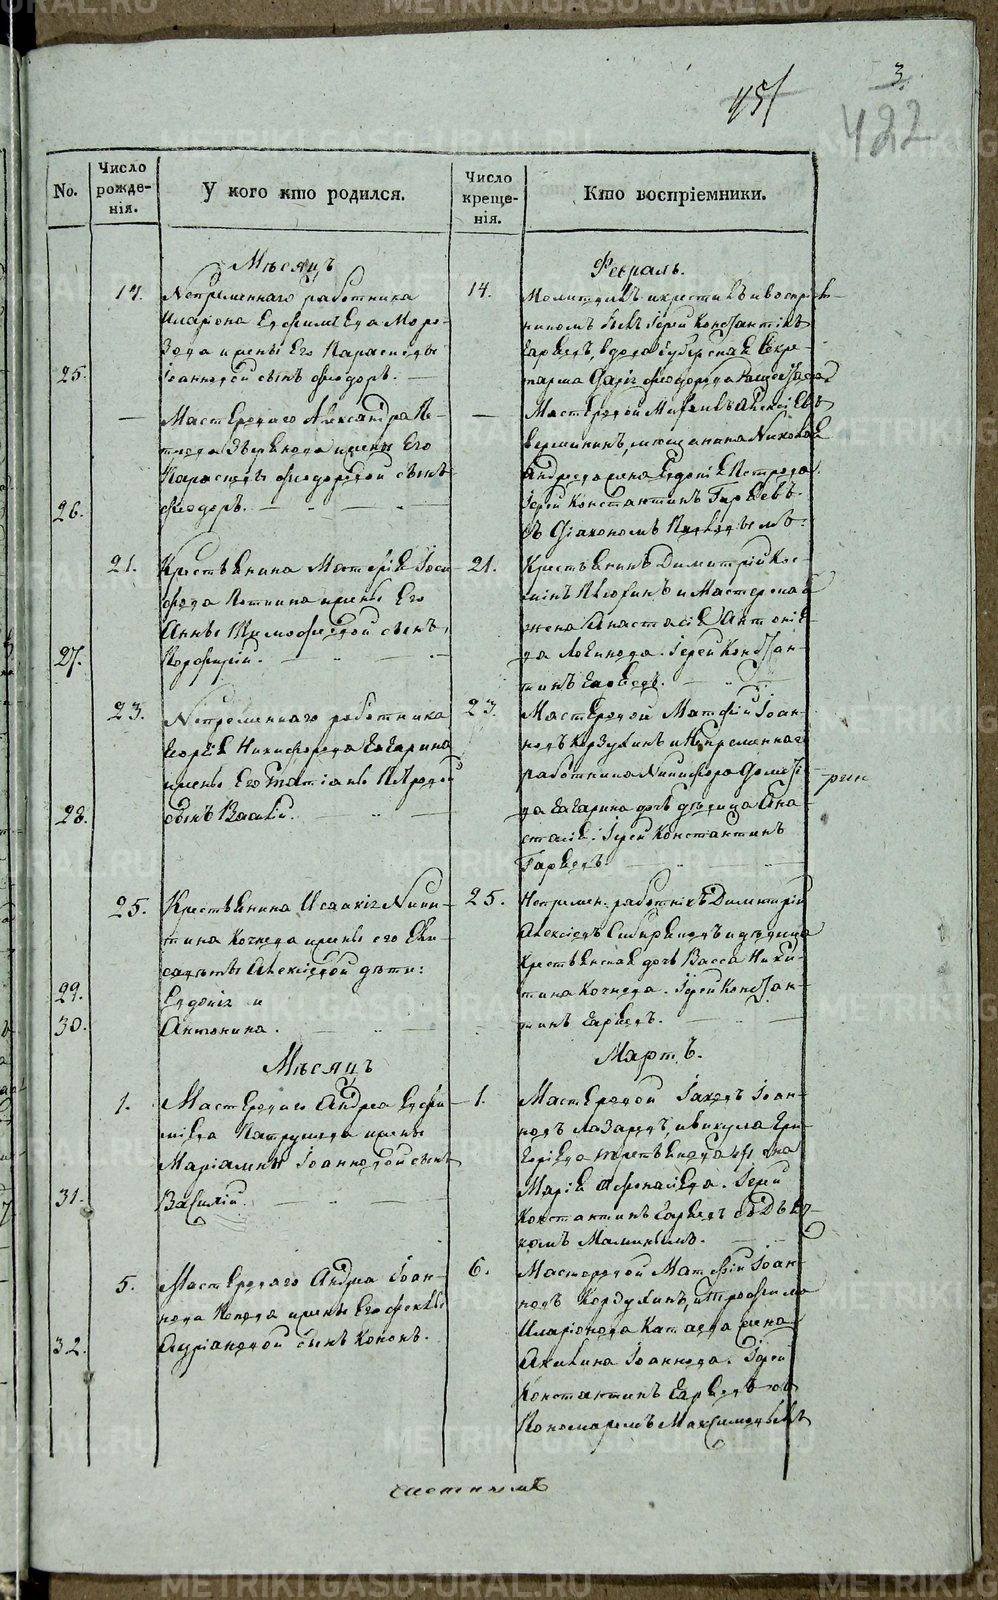 METRIKI.GASO-URAL.RU
451
3.
422
No.
Число рожде-нія.
У кого кто родился.
Число креще-нія.
Кто воспріемники.
Мѣсяцъ
Февраль.
25.
14.
Непременнаго работника
Иларіона Евфимьева Моро-
зова и жены Его Параскевы
Іоанновой сынъ Ѳеодоръ.
14.
Молитвилъ и крестилъ и воспр-
никомъ былъ Іерей Константинъ
Гаряевъ, вдова Губернская Секре-
тарша
26.
—
Мастероваго Александра Пе-
трова и жены Его
Параскевы Ѳеодоровой сынъ
Ѳеодоръ.
—
Мастеровой Алексіевъ
Вершининъ, мещанина Николая
Андреева жена Евдокія Петрова.
Іерей Константинъ Гаряевъ.
съ Діакономъ
27.
21.
Крестьянина Іоси-
фова и жены Его
Анны Тимофеевой сынъ
Порфирій.
21.
Крестьянинъ Димитрій Кос-
минъ и Мастерская
жена Анастасія Антоніе-
ва Логинова. Іерей Констан-
тинъ Гаряевъ.
28.
23.
Непременнаго работника
Георгія Никифорова Гагарина
и жены Его Татіаны Петровой
сынъ Василій.
23.
Мастеровой Матфій Іоан-
новъ Корзухинъ и Непременнаго
работника Никифора
ва Гагарина дочь девица Ана-
стасія. Іерей Константинъ
Гаряевъ.
29.
30.
25.
Крестьянина Исаакія Ники-
тина Кочнева и жены его Ели-
саветы Алексіевой дети:
Евдокія и
Антонина.
25.
Непремен. работникъ Димитрій
Алексіевъ Сибиряковъ и девица
Крестьянская дочь Васса Ники-
тина Кочнева. Іерей Констан-
тинъ Гаряевъ.
Мѣсяцъ
Мартъ.
31.
1.
Мастероваго Андреа Евфи-
міева Патрушева и жены
Маріамны Іоанновой сынъ
Василій.
1.
Мастеровой Іаковъ Іоан-
новъ Лазаревъ, и Викула Гри-
горіева жена
Марія Афонасіева. Іерей
Константинъ Гаряевъ съ Дьяч-
комъ Маминымъ.
32.
5.
Мастероваго Андреа Іоан-
нова Попова и жены Его Феклы
Адріановой сынъ Кононъ.
6.
Мастеровой Матфій Іоан-
новъ Корзухинъ, и Трофима
Иларіонова Катаева жена
Акилина Іоаннова. Іерей
Константинъ Гаряевъ со
Пономаремъ Максимовымъ